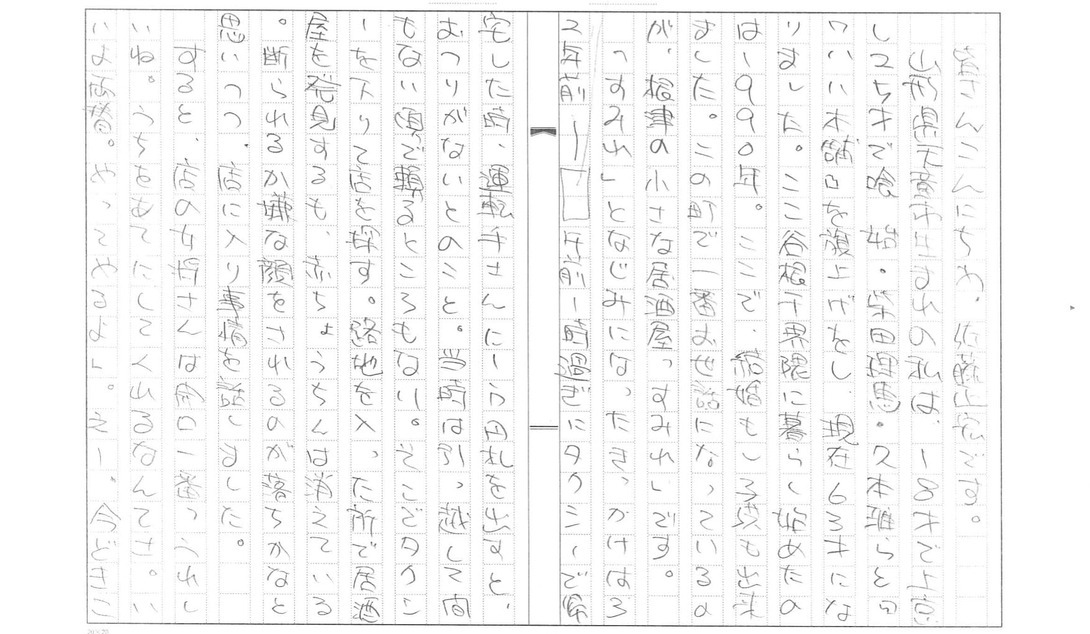 皆さんこんにちは。佐藤正宏です。
山形県天童市生まれの私は、18才で上京
し25才で喰 始・柴田理恵・久本雅らと
ワハハ本舗を旗上げをし、現在63才にな
りました。ここ谷根千界隈に暮らし始めたの
は1990年。ここで、結婚もし子供も出来
ました。この町で一番お世話になっているの
が、根津の小さな居酒屋「すみれ」です。
「すみれ」となじみになったきっかけは3
2年前ー 午前1時過ぎにタクシーで帰
宅した時、運転手さんに一万円札を出すと、
おつりがないとのこと。当時は引っ越して間
もない頃で頼るところもない。そこでタクシ
ーを下りて店を探す。路地を入った所で居酒
屋を発見するも、赤ちょうちんは消えている
。断られるか嫌な顔をされるのが落ちかなと
思いつつ、店に入り事情を話しました。
すると、店の女将さんは「今日一番うれし
いね。うちをあてにしてくれるなんてさ。い
いよ両替。やってやるよ」。えー。今どきこ